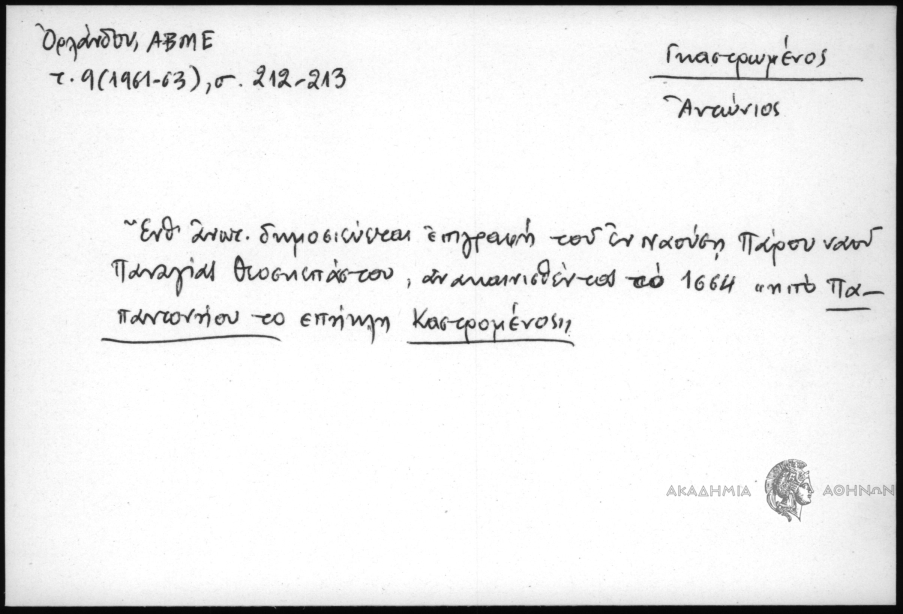 Ὀρλάνδου, ΑΒΜΕ
τ. 9 (1961-63), σ. 212-213
Γκαστρωμένος
Ἀντώνιος
Ἔνθ' ἄνωτ. δημοσιεύεται ἐπιγραφή τοῦ ἐν Ναούσῃ Πάρου ναοῦ
Παναγίας Θεοσκεπάστου, ἀνακαινισθέντος τό 1664 "ηπὸ Πα-
παντονήου το επήκλη Καστρομένος"
ΑΚΑΔΗΜΙΑ ΑΘΗΝΩΝ